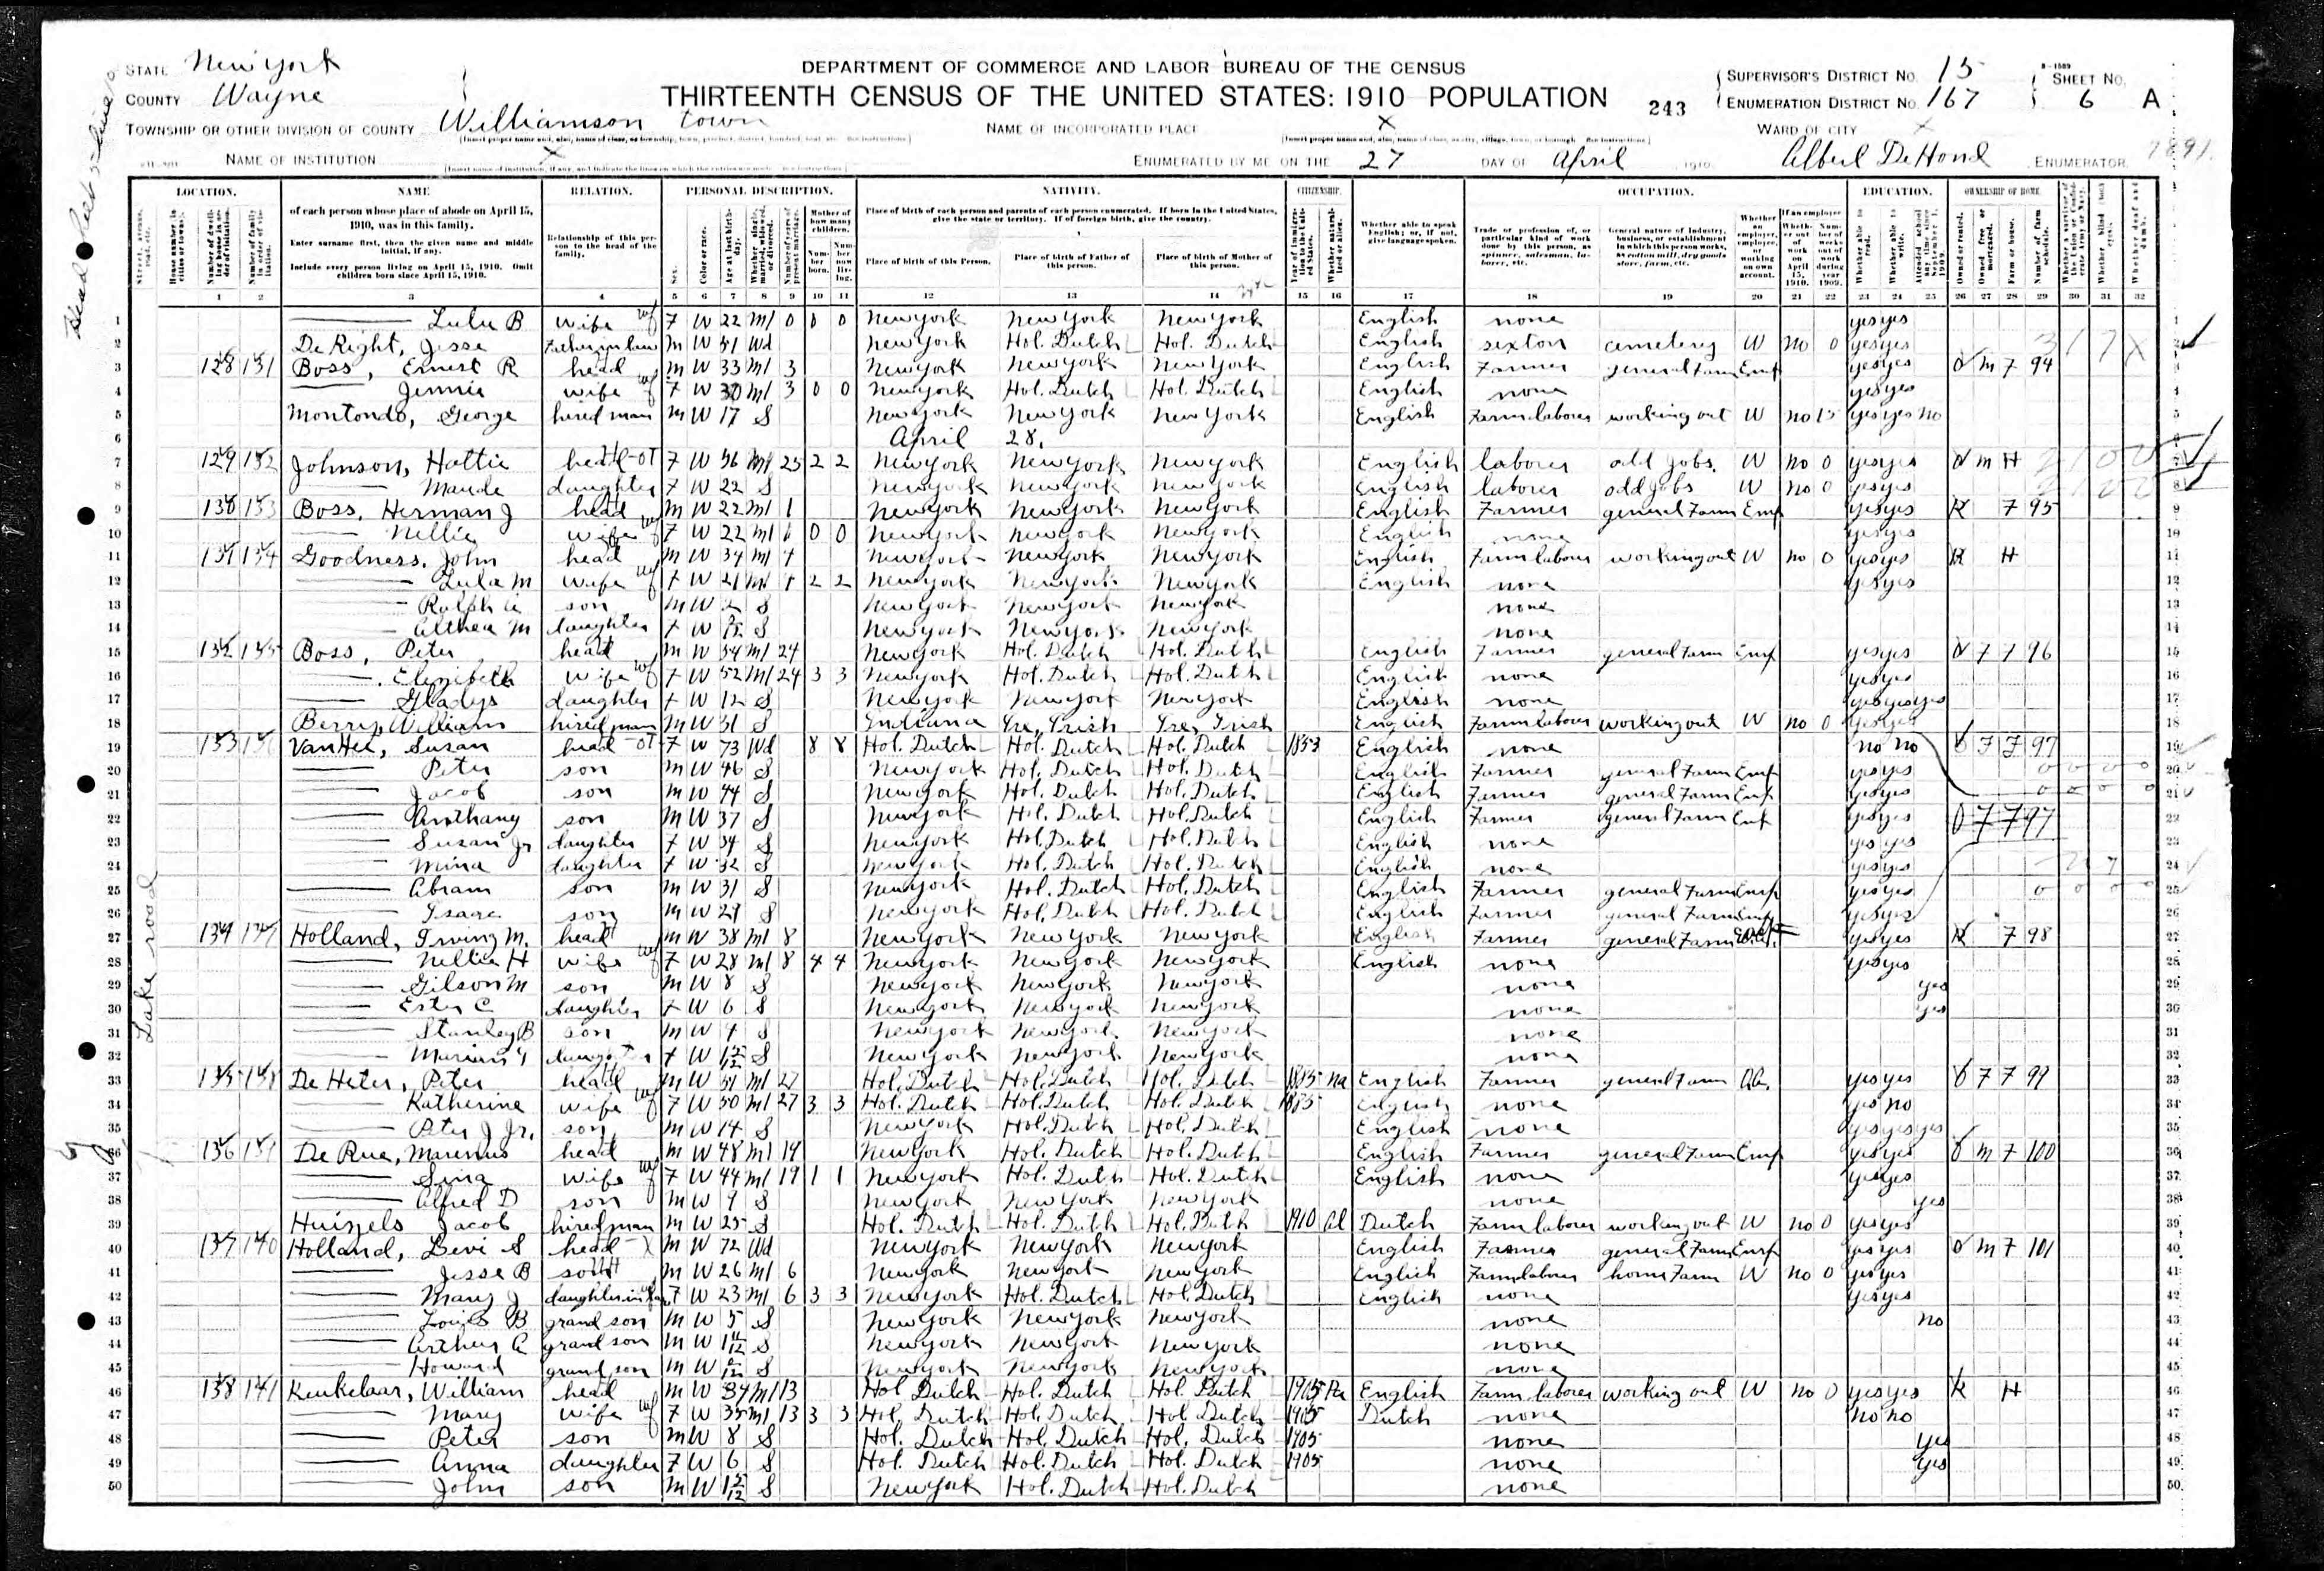 STATE New York
COUNTY Wayne
DEPARTMENT OF COMMERCE AND LABOR BUREAU OF THE CENSUS
THIRTEENTH CENSUS OF THE UNITED STATES: 1910 POPULATION
243
SUPERVISOR'S DISTRICT NO. 15
ENUMERATION DISTRICT NO. 167
SHEET NO. 6 A
TOWNSHIP OR OTHER DIVISION OF COUNTY Williamson town
NAME OF INCORPORATED PLACE X
WARD OF CITY X
NAME OF INSTITUTION X
ENUMERATED BY ME ON THE 27 DAY OF April, 1910. Albert DeHond, ENUMERATOR 7891
LOCATION. NAME RELATION. PERSONAL DESCRIPTION. NATIVITY. CITIZENSHIP. OCCUPATION. EDUCATION. OWNERSHIP OF HOME.
of each person whose place of abode on April 15, 1910, was in this family.
Enter surname first, then the given name and middle initial, if any.
Include every person living on April 15, 1910. Omit children born since April 15, 1910.
Relationship of this person to the head of the family.
Place of birth of each person and parents of each person enumerated. If born in the United States, give the state or territory. If of foreign birth, give the country.
Place of birth of this Person. Place of birth of Father of this person. Place of birth of Mother of this person.
Whether able to speak English; or, if not, give language spoken.
1 2 3 4 5 6 7 8 9 10 11 12 13 14 15 16 17 18 19 20 21 22 23 24 25 26 27 28 29 30 31 32
Lake road
1 Lulu B wife F W 22 M1 0 0 0 New York New York New York English none yes yes
2 De Right, Jesse Father in law M W 51 Wd New York Hol. Dutch Hol. Dutch English sexton cemetery W no 0 yes yes
3 128 131 Boss, Ernest R head M W 33 M1 3 New York New York New York English Farmer general Farm Emp yes yes O M F 94
4 Jennie wife F W 30 M1 3 0 0 New York Hol. Dutch Hol. Dutch English none yes yes
5 Montondo, George hired man M W 17 S New York New York New York English Farm laborer working out W no 15 yes yes no
6 April 28,
7 129 132 Johnson, Hattie head F W 56 M1 25 2 2 New York New York New York English laborer odd jobs W no 0 yes yes O M H
8 Maude daughter F W 22 S New York New York New York English laborer odd jobs W no 0 yes yes
9 130 133 Boss, Herman J head M W 22 M1 1 New York New York New York English Farmer general Farm Emp yes yes R F 95
10 Nellie wife F W 22 M1 0 0 New York New York New York English none yes yes
11 131 134 Goodness, John head M W 34 M1 4 New York New York New York English Farm laborer working out W no 0 yes yes R H
12 Lula M wife F W 21 M1 4 2 2 New York New York New York English none yes yes
13 Ralph son M W 2 S New York New York New York none
14 Althea M daughter F W S New York New York New York none
15 132 135 Boss, Peter head M W 54 M1 24 New York Hol. Dutch Hol. Dutch English Farmer general Farm Emp yes yes O F F 96
16 Elizibeth wife F W 52 M1 24 3 3 New York Hol. Dutch Hol. Dutch English none yes yes
17 Gladys daughter F W 12 S New York New York New York English none yes yes yes
18 Berry, William hired man M W 31 S Indiana Ire, Irish Ire, Irish English Farm laborer working out W no 0 yes yes
19 133 136 VanHee, Susan head F W 73 Wd 8 8 Hol. Dutch Hol. Dutch Hol. Dutch 1853 English none no no O F F 97
20 Peter son M W 46 S New York Hol. Dutch Hol. Dutch English Farmer general Farm Emp yes yes
21 Jacob son M W 44 S New York Hol. Dutch Hol. Dutch English Farmer general Farm Emp yes yes
22 Anthany son M W 37 S New York Hol. Dutch Hol. Dutch English Farmer general Farm Emp yes yes O F F 97
23 Susan Jr daughter F W 34 S New York Hol. Dutch Hol. Dutch English none yes yes
24 Mina daughter F W 32 S New York Hol. Dutch Hol. Dutch English none yes yes
25 Abram son M W 31 S New York Hol. Dutch Hol. Dutch English Farmer general Farm Emp yes yes
26 Isaac son M W 29 S New York Hol. Dutch Hol. Dutch English Farmer general Farm Emp yes yes
27 134 137 Holland, Irving M. head M W 38 M1 8 New York New York New York English Farmer general Farm yes yes R F 98
28 Nellie H wife F W 28 M1 8 4 4 New York New York New York English none yes yes
29 Gilson M son M W 8 S New York New York New York none yes
30 Ester C daughter F W 6 S New York New York New York none yes
31 Stanley B son M W 4 S New York New York New York none
32 Marian daughter F W S New York New York New York none
33 135 138 De Heter, Peter head M W 51 M1 27 Hol. Dutch Hol. Dutch Hol. Dutch 1885 Na English Farmer general Farm O.A. yes yes O F F 99
34 Katherine wife F W 50 M1 27 3 3 Hol. Dutch Hol. Dutch Hol. Dutch 1885 English none yes no
35 Peter J Jr. son M W 14 S New York Hol. Dutch Hol. Dutch English none yes yes yes
36 136 139 De Rue, Marenus head M W 48 M1 19 New York Hol. Dutch Hol. Dutch English Farmer general Farm Emp yes yes O M F 100
37 Sina wife F W 44 M1 19 1 1 New York Hol. Dutch Hol. Dutch English none yes yes
38 Alfred D son M W 9 S New York New York New York none yes
39 Huizels Jacob hired man M W 25 S Hol. Dutch Hol. Dutch Hol. Dutch 1910 Al Dutch Farm laborer working out W no 0 yes yes
40 137 140 Holland, Levi S head M W 72 Wd New York New York New York English Farmer general Farm Emp yes yes O M F 101
41 Jesse B son M W 26 M1 6 New York New York New York English Farm laborer home Farm W no 0 yes yes
42 Mary J daughter in law F W 23 M1 6 3 3 New York Hol. Dutch Hol. Dutch English none yes yes
43 Louis B grand son M W 5 S New York New York New York none no
44 Arthur A grand son M W 1 11/12 S New York New York New York none
45 Howard grand son M W S New York New York New York none
46 138 141 Keukelaar, William head M W 34 M1 13 Hol. Dutch Hol. Dutch Hol. Dutch 1905 Pa English Farm laborer working out W no 0 yes yes R H
47 Mary wife F W 35 M1 13 3 3 Hol. Dutch Hol. Dutch Hol. Dutch 1905 Dutch none no no
48 Peter son M W 8 S Hol. Dutch Hol. Dutch Hol. Dutch 1905 none yes
49 Anna daughter F W 6 S Hol. Dutch Hol. Dutch Hol. Dutch 1905 none yes
50 John son M W 1 5/12 S New York Hol. Dutch Hol. Dutch none